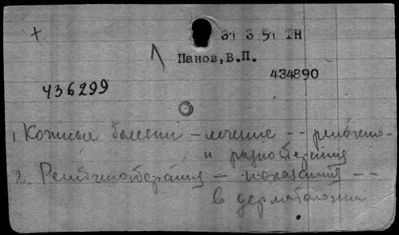 Панов,В.П.
434890
436299
1. Кожные болезни – лечение -- рентгено-
и радиотерапия
2. Рентгенотерапия – показания --
в дерматологии